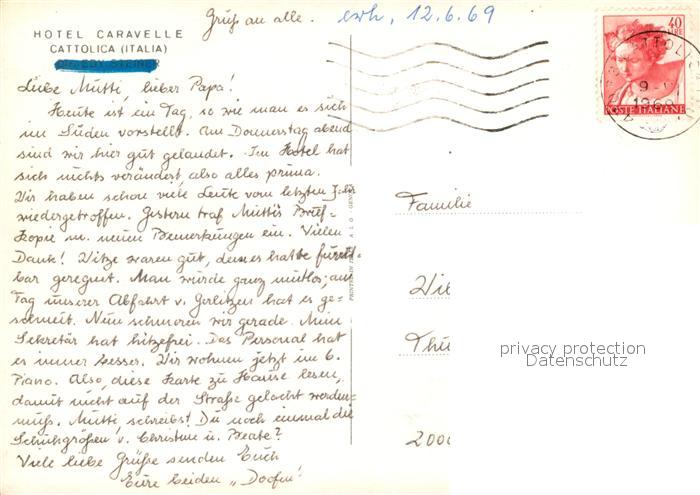 Grüß an alle. erh. 12.6.69
HOTEL CARAVELLE
CATTOLICA (ITALIA)
Liebe Mutti, lieber Papa!
Heute ist ein Tag, so wie man es sich
im Süden vorstellt. Am Donnerstag abend
sind wir hier gut gelandet. Im Hotel hat
sich nichts verändert, also alles prima.
Wir haben schon viele Leute vom letzten Jahr
wiedergetroffen. Gestern traf Muttis Brief-
kopie m. neuen Bemerkungen ein. Vielen
Dank! Witze waren gut, denn es hatte furcht-
bar geregnet. Man wurde ganz mutlos; am
Tag unserer Abfahrt v. Gerlitzen hat es ge-
schneit. Nun schmoren wir gerade. Mein
Sekretär hat hitzefrei. Das Personal hat
es immer besser. Wir wohnen jetzt im 6.
Piano. Also, diese Karte zu Hause lesen,
damit nicht auf der Straße gelacht werden
muß. Mutti, schreibst Du noch einmal die
Schuhgrößen v. Christine u. Beate?
Viele liebe Grüße senden Euch
Eure beiden „Doofen"
40
LIRE
1969
POSTE ITALIANE
Familie
Wie
Thü
2000
privacy protection
Datenschutz